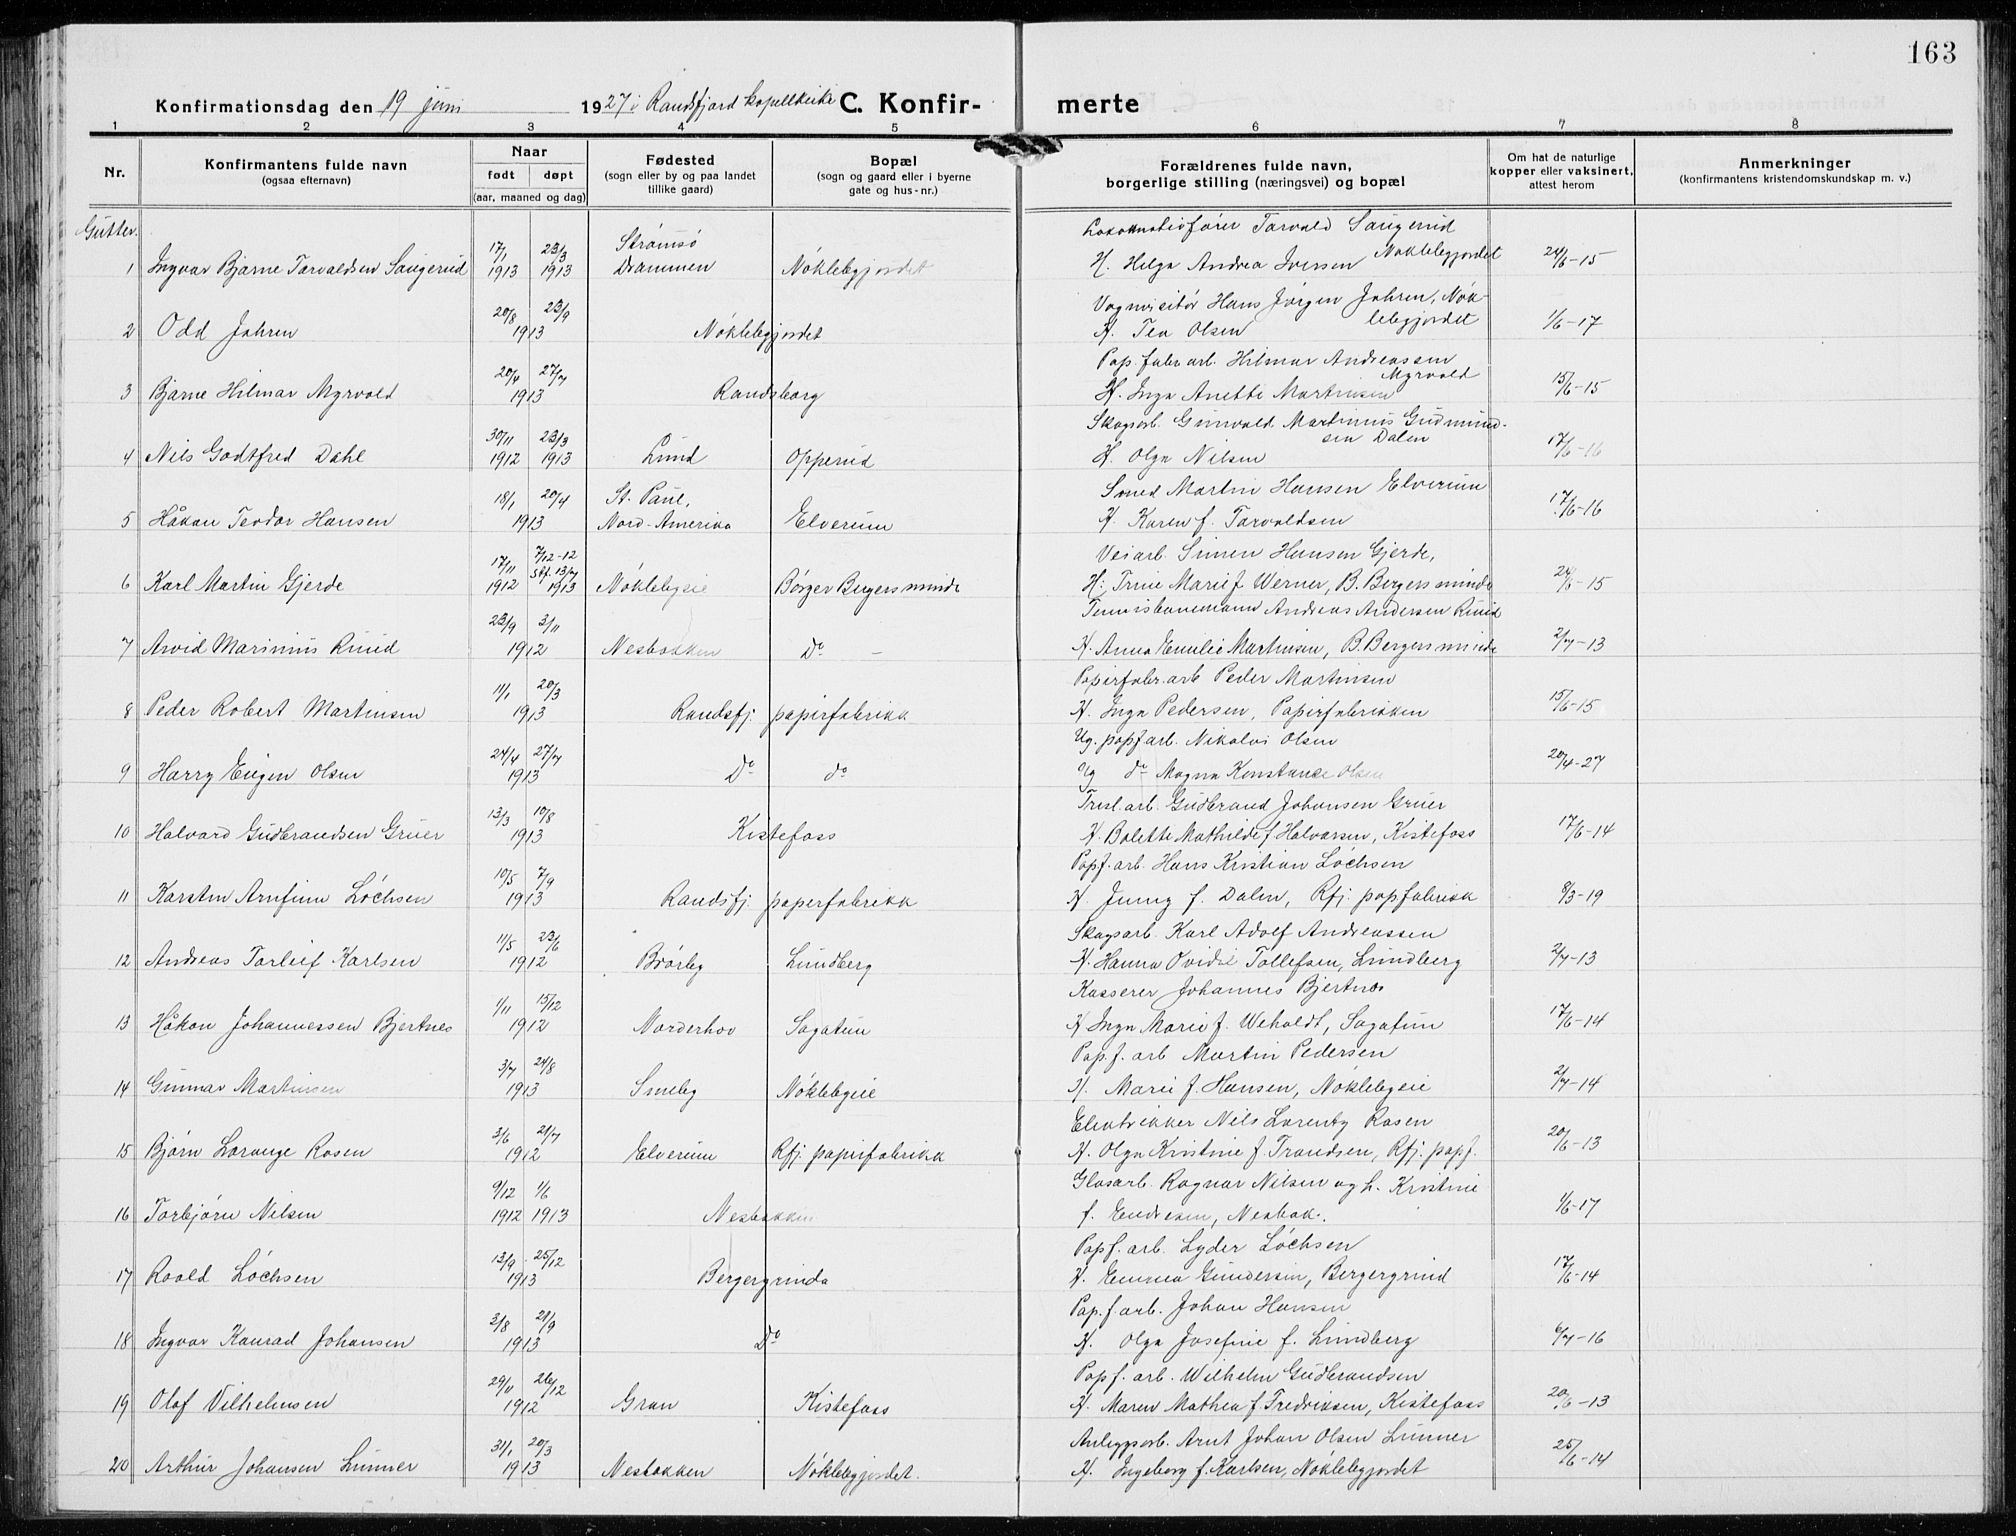 163
Konfirmationsdag den 19 juni 1927 i Randsfjord kapellkirke C. Konfir- merte
1 2 3 4 5 6 7 8
Nr.
Konfirmantens fulde navn
(ogsaa efternavn)
Naar
født døpt
(aar, maaned og dag)
Fødested
(sogn eller by og paa landet
tillike gaard)
Bopæl
(sogn og gaard eller i byerne
gate og hus-nr.)
Forældrenes fulde navn,
borgerlige stilling (næringsvei) og bopæl
Om hat de naturlige
kopper eller vaksinert,
attest herom
Anmerkninger
(konfirmantens kristendomskundskap m. v.)
Gutter.
Lokomotivfører Torvald Saugerud
1 Ingvar Bjarne Torvaldsen Saugerud 17/1 1913 23/3 1913 Strømsø Drammen Nøklebgjordet H. Helga Andrea Iversen Nøklebgjordet 24/6-15
Vognvisitør Hans Jørgen Johren, Nøk-
2 Odd Johren 20/8 23/9 1913 Nøklebgjordet H. Tea Olsen lebgjordet 1/6-17
Pap. fabr. arb. Hilmar Andreassen
3 Bjarne Hilmar Myrvold 20/4 27/7 1913 Randsborg H. Inga Anette Martinsen Myrvold 15/6-15
Skogsarb. Gunvald Martinius Gudmund-
4 Nils Godtfred Dahl 30/11 1912 23/3 1913 Lund Opperud H. Olga Nilsen sen Dalen 17/6-16
Smed Martin Hansen Elverum
5 Håkon Teodor Hansen 18/1 20/4 1913 St. Paul, Nord-Amerika Elverum H. Karen f. Torvaldsen 17/6-16
Veiarb. Simen Hansen Gjerde,
6 Karl Martin Gjerde 17/11 1912 7/12-12 st.f. 13/7 1913 Nøklebyeie Børger Bergersminde H. Trine Marie f. Werner, B. Bergersminde 24/6-15
Tennisbanemann Andreas Andersen Ruud
7 Arvid Marinius Ruud 23/9 3/11 1912 Nesbakken Do - H. Anna Emilie Martinsen, B. Bergersminde 2/7-13
Papirfabr. arb Peder Martinsen
8 Peder Robert Martinsen 11/1 20/3 1913 Randsfj. papirfabrikk H. Inga Pedersen, Papirfabrikken 15/6-15
Ug. papf arb. Nikolai Olsen
9 Harry Eugen Olsen 24/4 27/7 1913 Do do og do Magna Konstanse Olsen 20/4-27
Tresl. arb. Gudbrand Johansen Gruer
10 Halvard Gudbrandsen Gruer 13/3 10/8 1913 Kistefoss H. Bolette Mathilde f Halvorsen, Kistefoss 17/6-14
Papf. arb. Hans Kristian Løchsen
11 Karsten Arnfinn Løchsen 10/5 7/9 1913 Randsfj. papirfabrikk H. Jenny f. Dalen, Rfj. papfabrikk 8/3-19
Skogsarb. Karl Adolf Andreassen
12 Andreas Torleif Karlsen 11/5 23/6 1912 Brørby Lundberg H. Hanna Ovidie Tollefsen, Lundberg 2/7-13
Kasserer Johannes Bjertnes
13 Håkon Johannessen Bjertnes 1/11 15/12 1912 Norderhov Sagatun H Inga Marie f. Weholdt, Sagatun 17/6-14
Pap.f. arb Martin Pedersen
14 Gunnar Martinsen 3/7 24/8 1913 Smeby Nøklebyeie H. Marie f. Hansen, Nøklebyeie 2/7-14
Elektrikker Nils Lorentz Rosen
15 Bjørn Lorange Rosen 3/6 21/7 1912 Elverum Rfj. papirfabrikk H. Olga Kristine f. Trondsen, Rfj. papf. 20/6-13
Glasarb. Ragnar Nilsen og h. Kristine
16 Torbjørn Nilsen 9/12 1912 1/6 1913 Nesbakken f. Endresen, Nesbak. 1/6-17
Papf. arb. Lyder Løchsen
17 Roald Løchsen 13/9 25/12 1913 Bergergrinda H. Emma Gundersen, Bergergrind 17/6-14
Pap.f. arb. Johan Hansen
18 Ingvar Konrad Johansen 2/8 21/9 1913 Do H. Olga Josefine f. Lundberg 6/7-16
Papf. arb. Wilhelm Gudbrandsen
19 Olaf Vilhelmsen 29/11 26/12 1912 Gran Kistefoss H. Maren Mathea f. Fredriksen, Kistefoss 20/6-13
Anleggsarb. Arnt Johan Olsen Lunner
20 Arthur Johansen Lunner 31/1 20/3 1913 Nesbakken Nøklebgjordet. H. Ingeborg f. Karlsen, Nøklebgjordet 25/6-14